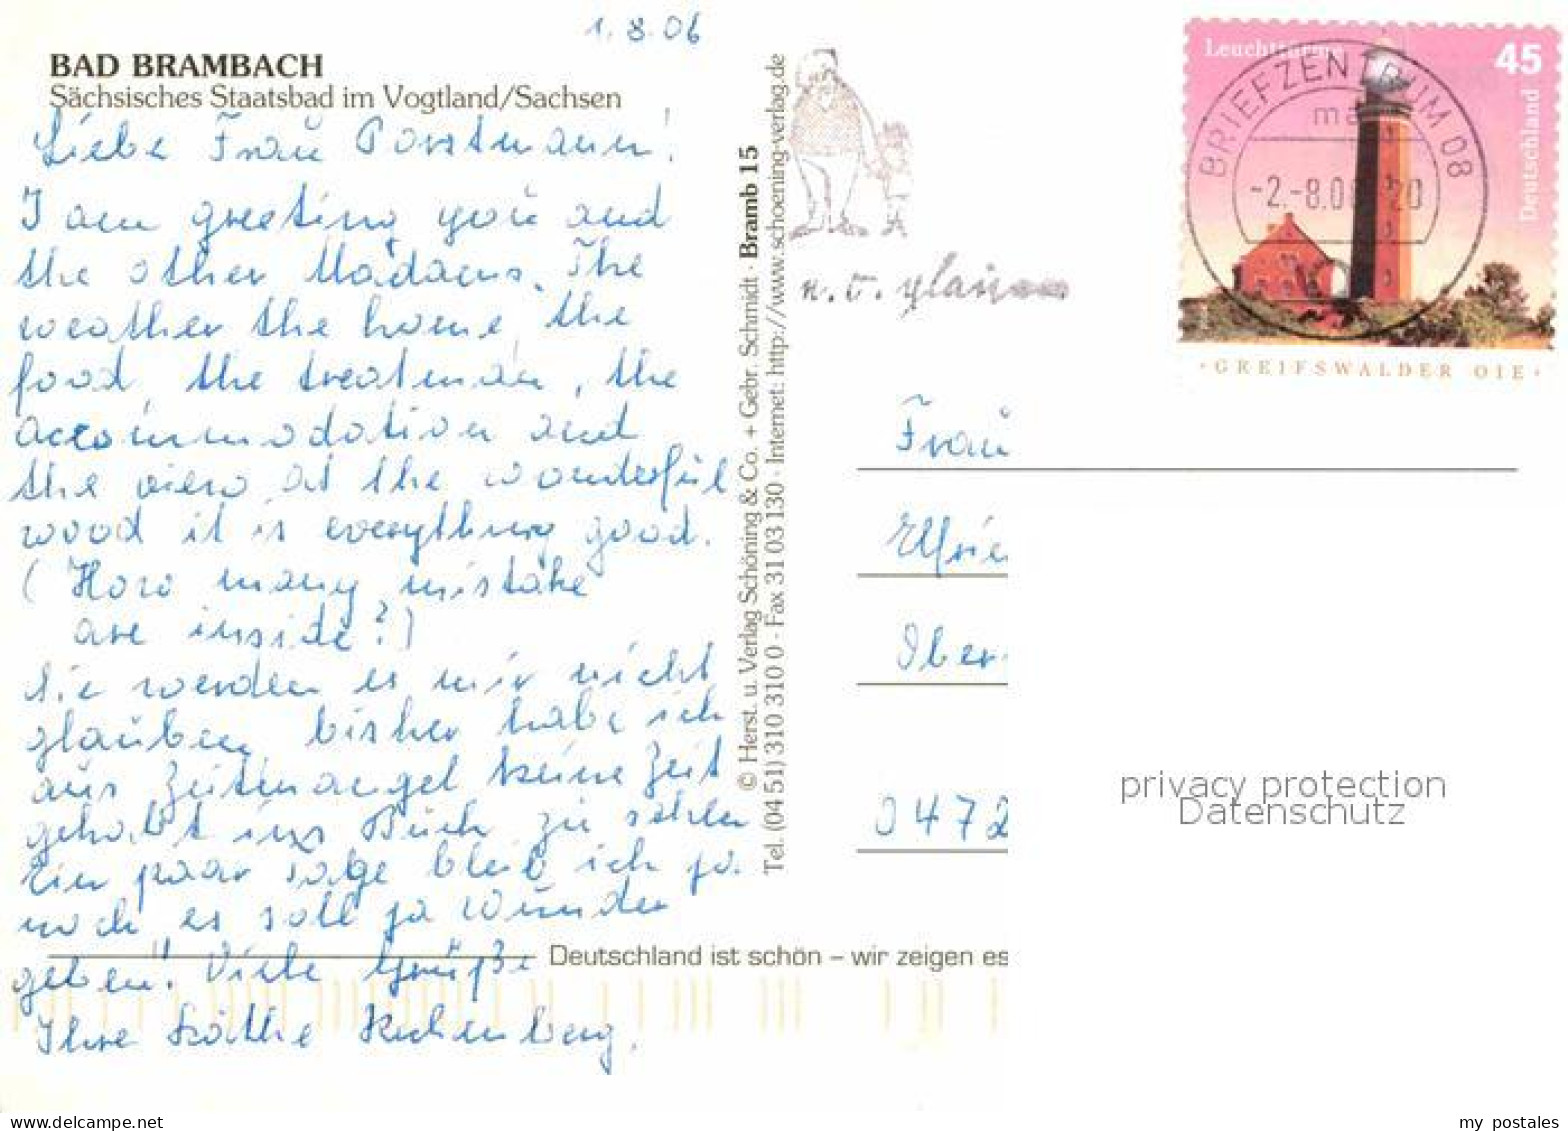 1.8.06
BAD BRAMBACH
Sächsisches Staatsbad im Vogtland/Sachsen
Liebe Frau Porstmann!
I am greeting you and
the other Madams. The
weather the home, the
food, the treatman, the
accommodation and
the view at the wonderful
wood it is everything good.
(How many mistake
are inside?)
Sie werden es mir nicht
glauben, bisher habe ich
aus Zeitmangel keine Zeit
gehabt ins Buch zu sehen
Ein paar Tage bleib ich ja
noch es soll ja Wunder
geben! Viele Grüße
Ihre Käthe
Deutschland ist schön – wir zeigen es
© Herst. u. Verlag Schöning & Co. + Gebr. Schmidt · Bramb 15
Tel. (04 51) 310 310 0 · Fax 31 03 130 · Internet: http://www.schoening-verlag.de
Leuchttürme
45
Deutschland
BRIEFZENTRUM 08
-2.-8.06 20
·GREIFSWALDER OIE·
Frau
Elfrie
Ober
0472
privacy protection
Datenschutz
my postales